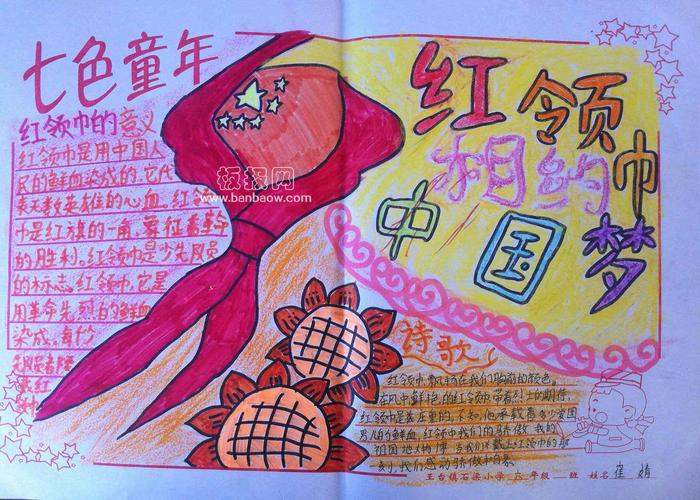 七色童年
红领巾的意义
红领巾是用中国人
民的鲜血染成的,它代
表无数英雄的心血.红领
巾是红旗的一角,象征着革命
的胜利。红领巾是少先队员
的标志.红领巾,它是
用革命先烈的鲜血
染成.每个
红领巾
相约
中国梦
板报网
www.banbaow.com
诗歌
红领巾飘扬在我们胸前的颜色。
在风中鲜艳的红领巾带着烈士的期待,
红领巾是
男儿的鲜血 红领巾我们的骄傲 我的
祖国
刻,我们感动骄傲
王台镇石梁小学 六 年级 班 姓名 崔 婧